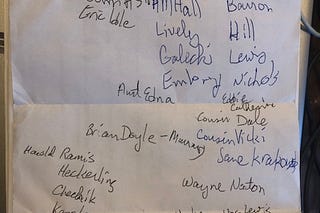 Hall Barron
Eric Idle
Lively Hill
Galecki Lewis
Embry Nichols
Aunt Edna
Eddie
Catherine
Cousin Dale
Brian Doyle-Murray Cousin Vicki
Harold Ramis Jane Krakowski
Heckerling
Wayne Newton
Chechik
Lewis